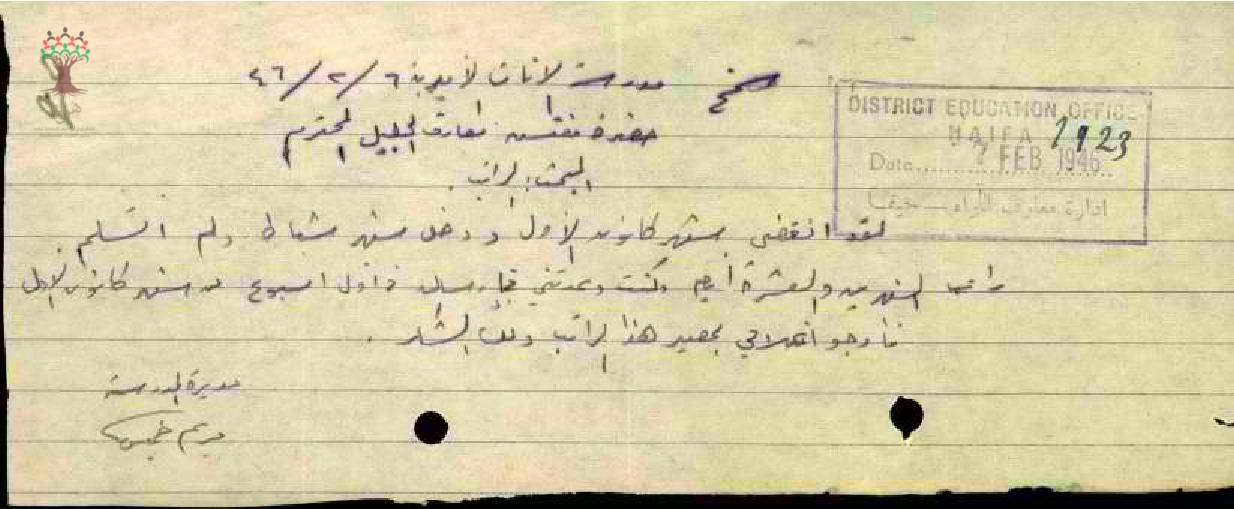 سمخ مدرسة الاناث الأميرية ٦/٢/٤٦
حضرة مفتش معارف الجليل المحترم
البحث: الراتب.
لقد انقضى شهر كانون الأول ودخل شهر شباط ولم اتسلم
راتب الشهرين والعشرة أيام وكنت وعدتني بإرساله في أول اسبوع من شهر كانون الأول
فأرجو اعلامي بمصير هذا الراتب ولك الشكر.
مديرة المدرسة
مريم
DISTRICT EDUCATION OFFICE
HAIFA 1923
Date 7 FEB 1946
ادارة معارف اللواء - حيفا